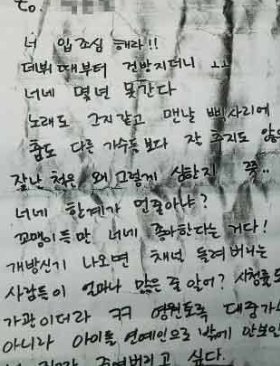 to.
너 입조심 해라!!
데뷔때부터 건방지더니 ㅗㅗ
너네 몇년 못간다
노래도 같고 맨날 삐사리에
춤도 다른 가수들보다 잘 추지도 않
잘난 척은 왜그렇게 심한지 쯪..
너네 한계가 먼줄아냐?
꼬맹이들만 너네 좋아한다는 거다!
개방신기 나오면 채널 돌려버리는
사람들이 얼마나 많은 줄 알어? 시청률도
가관이더라 ㅋㅋ 영원토록 대중가
아니라 아이돌 연예인으로 밖에 안보인
죽여버리고 싶다.